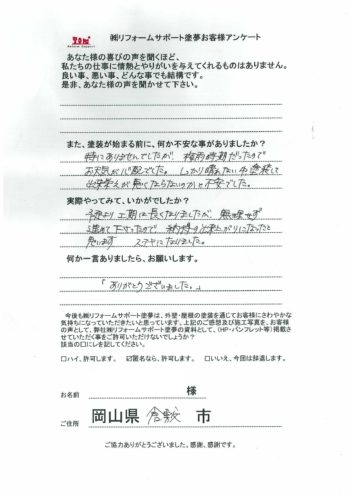 ㈱リフォームサポート塗夢お客様アンケート
あなた様の喜びの声を聞くほど、
私たちの仕事に情熱とやりがいを与えてくれるものはありません。
良い事、悪い事、どんな事でも結構です。
是非、あなた様の声を聞かせて下さい。
また、塗装が始まる前に、何か不安な事がありましたか？
特にありませんでしたが、梅雨時期だったので
お天気が心配でした。しっかり晴れない中塗装して
出来栄えが悪くならないのかと不安でした。
実際やってみて、いかがでしたか？
予定より工期は長くなりましたが、無理せず
進めて下さったので、納得する仕上がりになったと
思います ステキになりました。
何か一言ありましたら、お願いします。
「ありがとうございました。」
今後も㈱リフォームサポート塗夢は、外壁・屋根の塗装を通じてお客様にさわやかな
気持ちになっていただきたいと思っています。上記のご感想及び施工写真を、お客様
の声として、弊社㈱リフォームサポート塗夢の資料として、(HP・パンフレット等)掲載さ
せていただく事をご許可いただけないでしょうか？
該当の□に✓を記してください。
□ハイ、許可します。 ☑匿名なら、許可します。 □いいえ、今回は辞退します。
お名前 様
ご住所 岡山県 倉敷 市
ご協力ありがとうございました。感謝、感謝です。